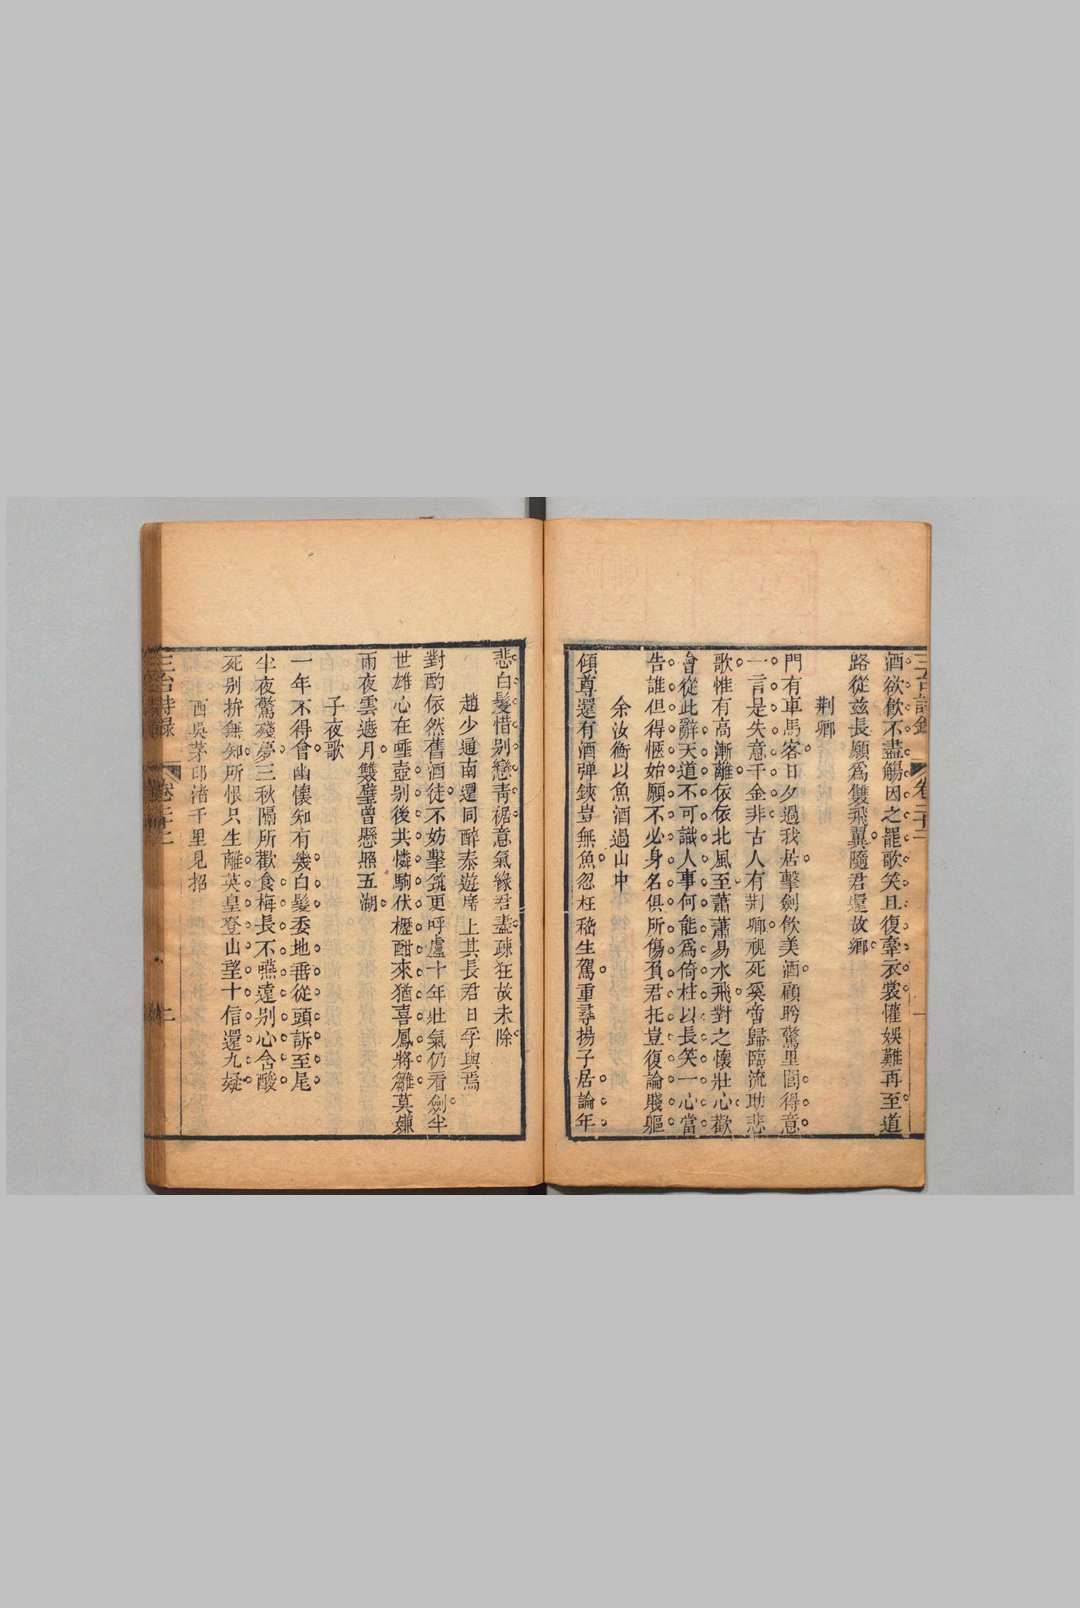 酒欲飮不盡觴因之罷歌笑且復牽衣裳懽娛難再至道
路從茲長願爲雙飛翼隨君還故鄉
荆卿
門有車馬客日夕過我居擊劍飮美酒顧盻驚里閭得意
一言是失意千金非古人有荆卿視死奚啻歸臨流助悲
歌惟有高漸離依依北風至蕭蕭易水飛對之懷壯心歡
會從此辭天道不可識人事何能爲倚柱以長笑一心當
告誰但得愜始願不必身名俱所傷負君托豈復論賤軀
余汝衡以魚酒過山中
傾尊還有酒弹鋏豈無魚忽枉嵇生駕重尋揚子居論年
悲白髮惜别戀青裾意氣緣君盡疎狂故未除
趙少通南還同醉泰遊席上其長君日孚與焉
對酌依然舊酒徒不妨擊筑更呼盧十年壯氣仍看劍半
世雄心在唾壺别後共憐駒伏櫪酣來猶喜鳳將雛莫嫌
雨夜雲遮月雙璧曾懸照五湖
子夜歌
一年不得會幽懷知有幾白髮委地垂從頭訴至尾
半夜驚殘夢三秋隔所歡食梅長不嚥遠别心含酸
死别拚無知所恨只生離英皇登山望十信還九疑
西吳茅邱渚千里見招
三台詩錄 卷二十二 二